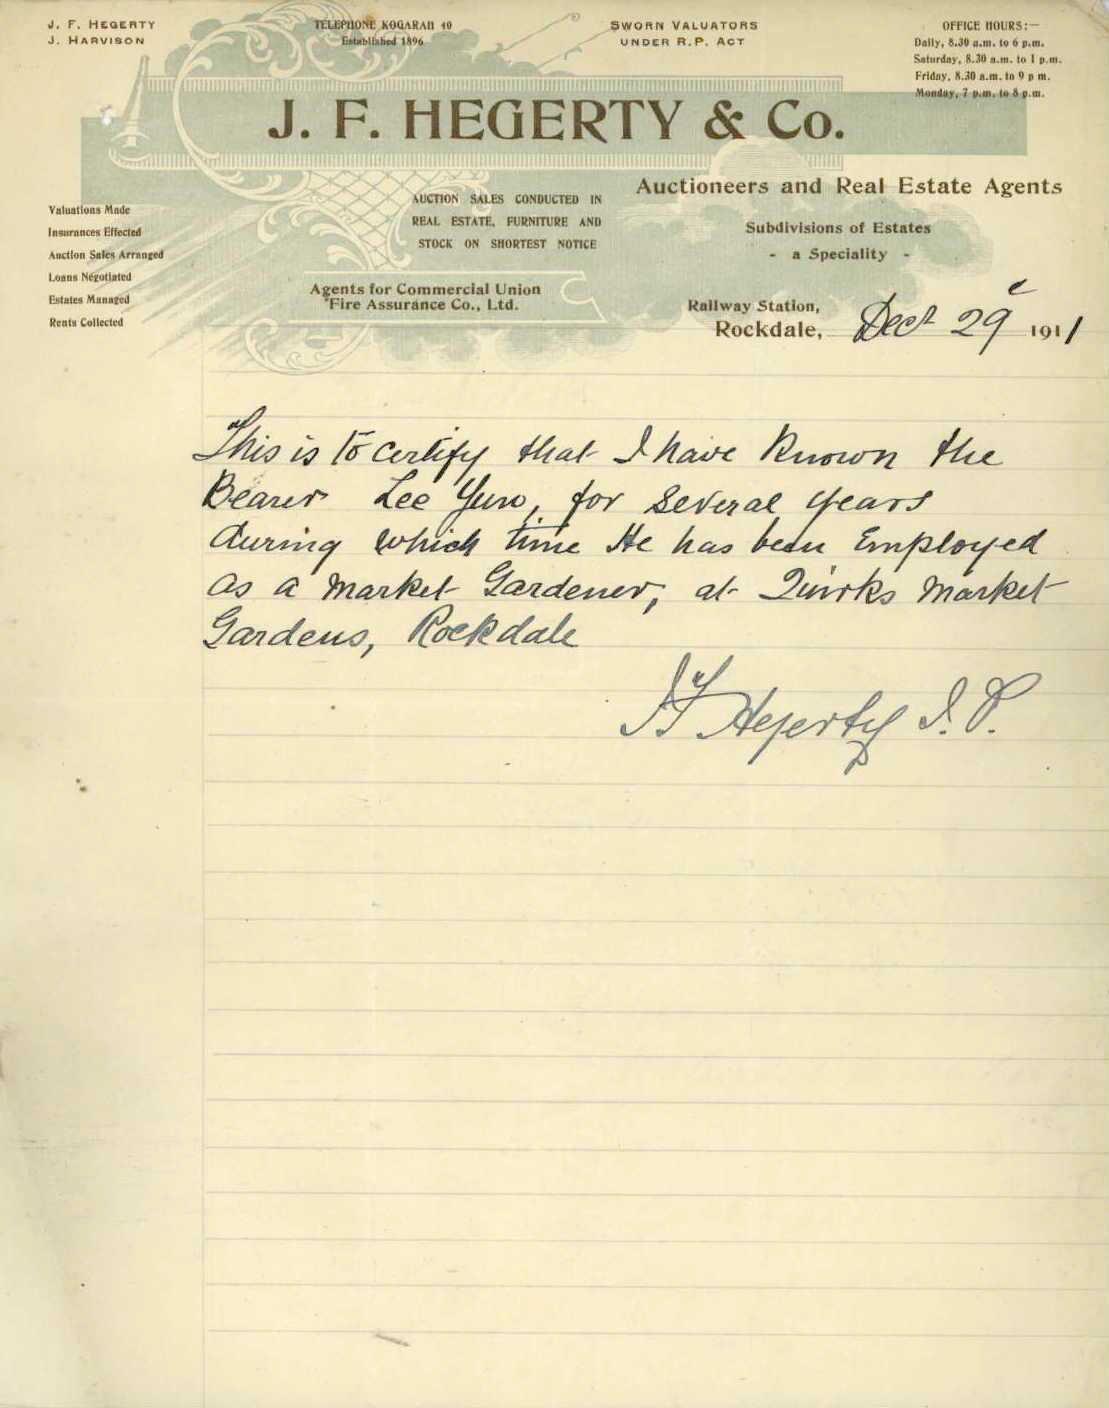 J. F. HEGERTY
J. HARVISON
TELEPHONE KOGARAH 40
Established 1896
SWORN VALUATORS
UNDER R.P. ACT
OFFICE HOURS:—
Daily, 8.30 a.m. to 6 p.m.
Saturday, 8.30 a.m. to 1 p.m.
Friday, 8.30 a.m. to 9 p m.
Monday, 7 p.m. to 8 p.m.
J. F. HEGERTY & Co.
Auctioneers and Real Estate Agents
Subdivisions of Estates
- a Speciality -
AUCTION SALES CONDUCTED IN
REAL ESTATE, FURNITURE AND
STOCK ON SHORTEST NOTICE
Valuations Made
Insurances Effected
Auction Sales Arranged
Loans Negotiated
Estates Managed
Rents Collected
Agents for Commercial Union
Fire Assurance Co., Ltd.
Railway Station,
Rockdale, Decr 29 1911
This is to certify that I have Known the
Bearer Lee Yun, for several years
during which time He has been Employed
as a Market Gardener, at Quirks Market
Gardens, Rockdale
J F Hegerty J. P.